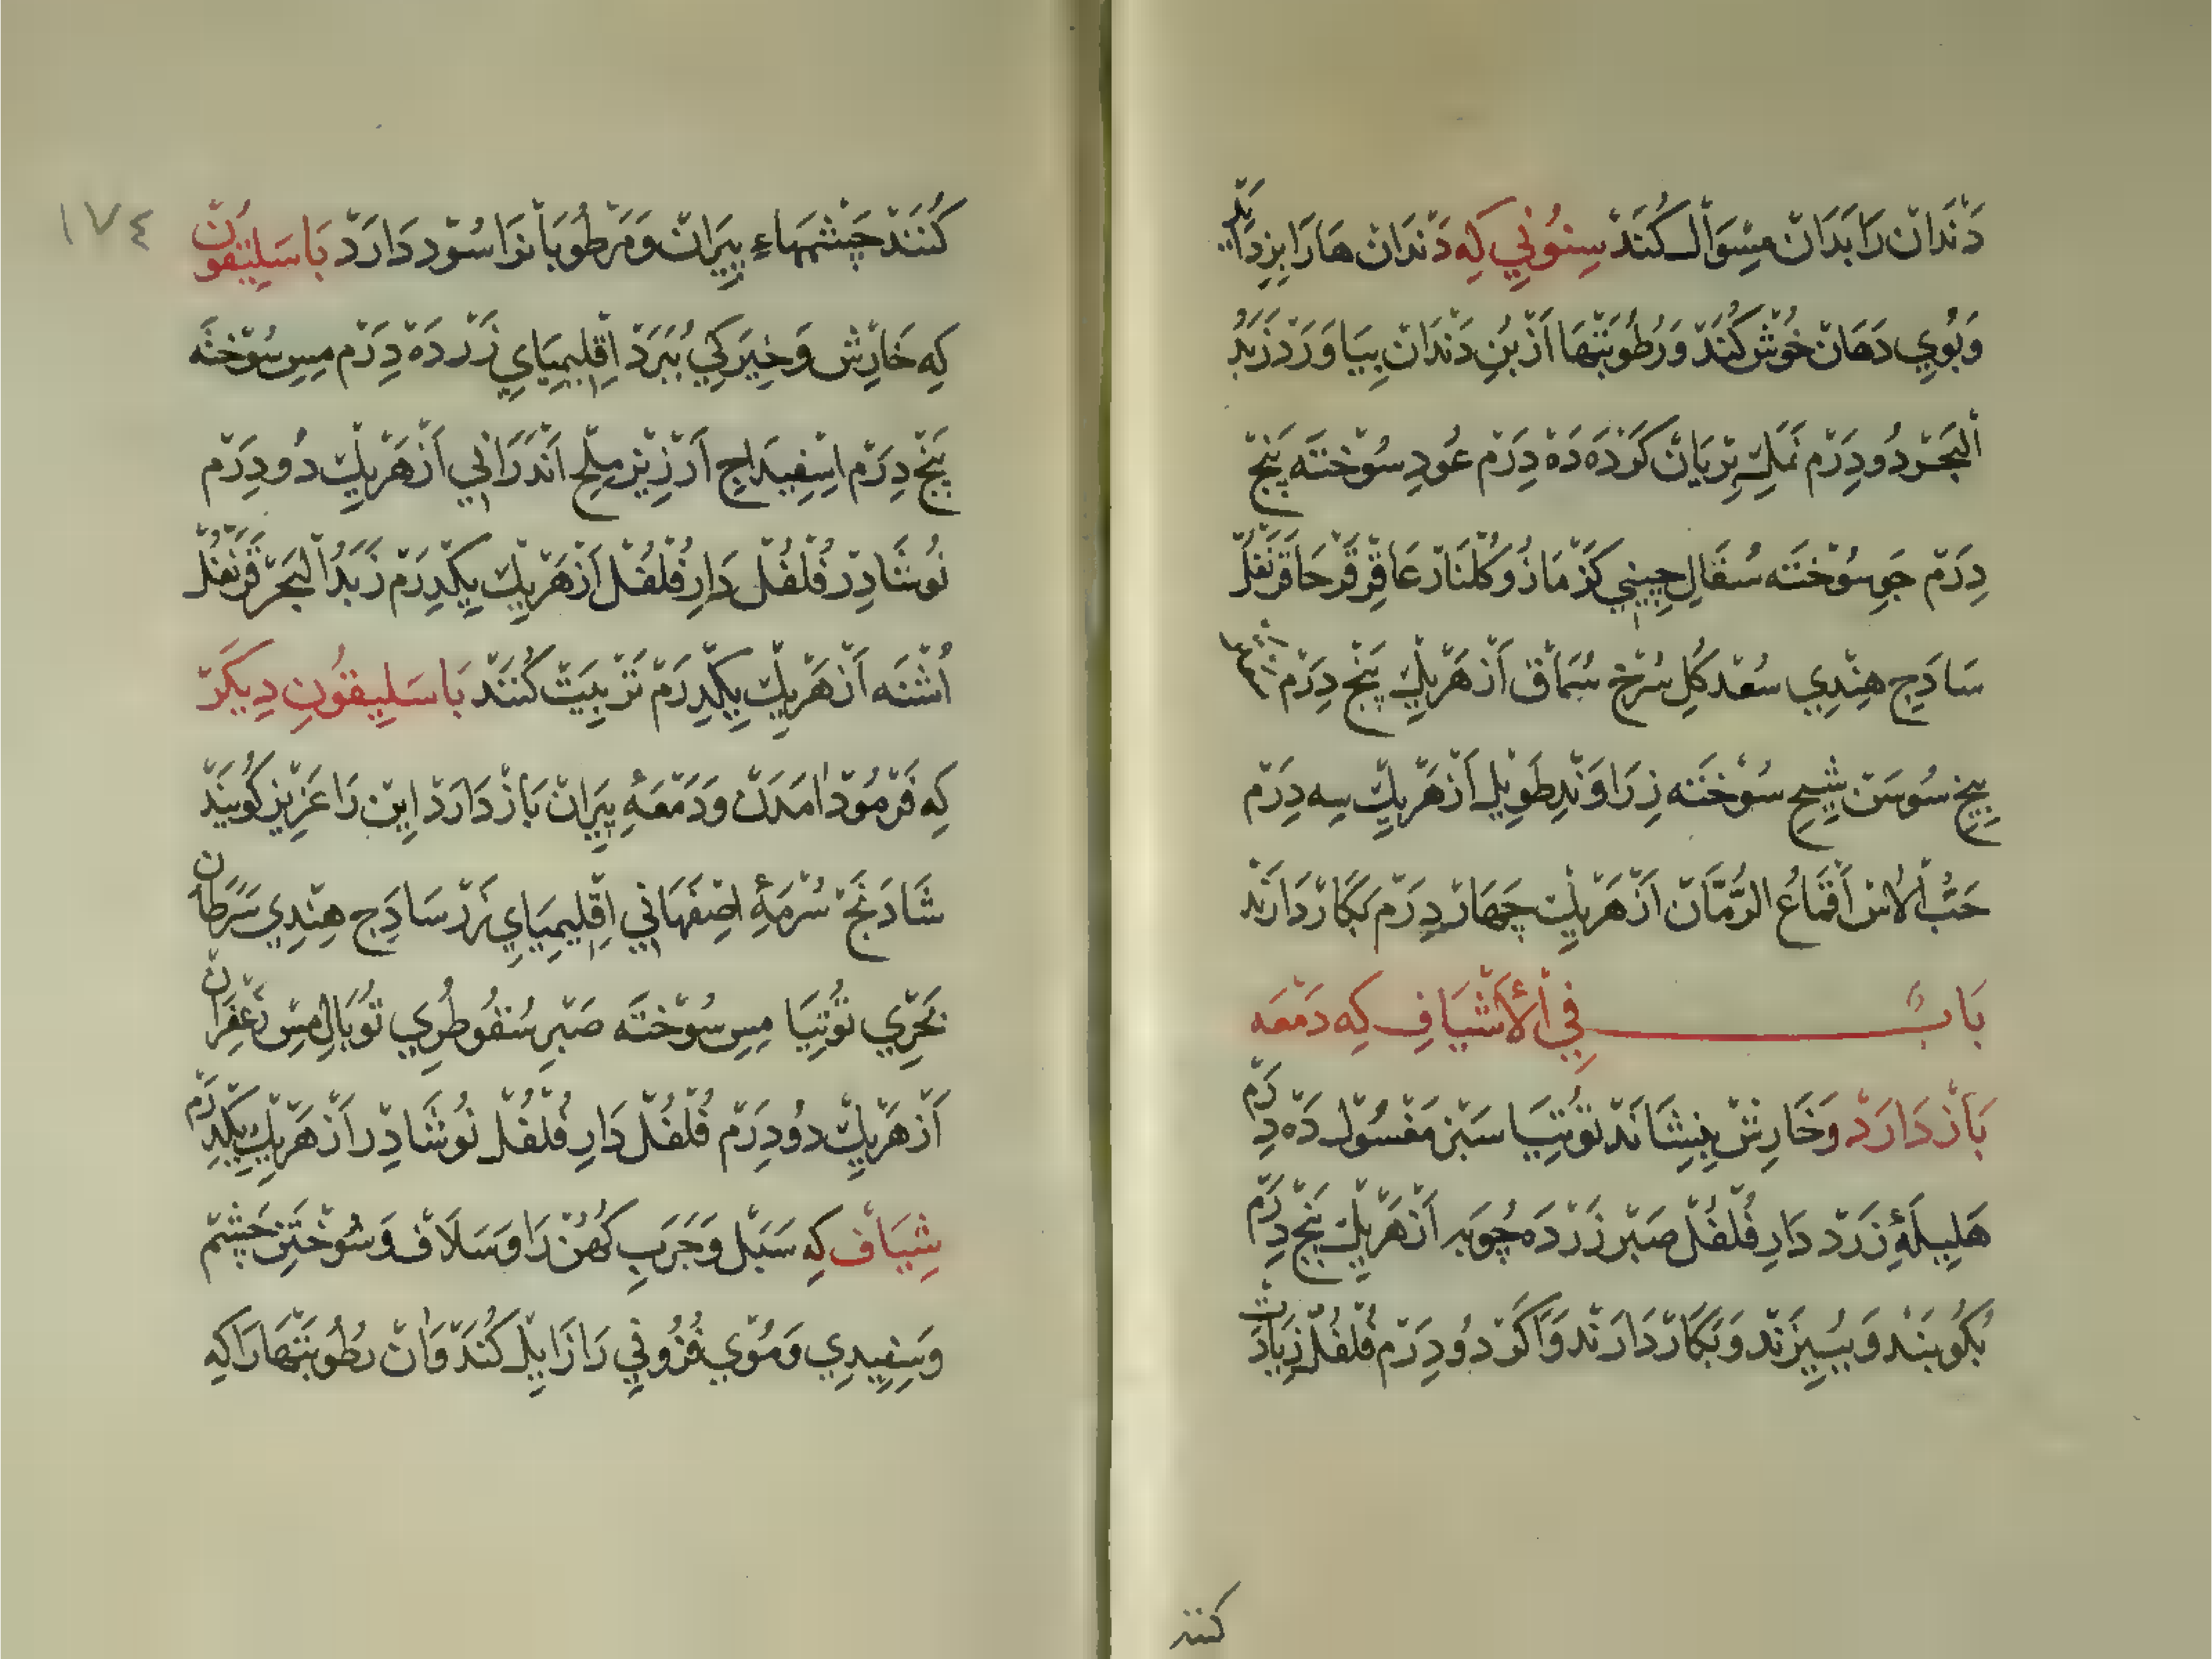 دَندَانْ رَا بَدَانْ مِسْوَاكْ كُنَندْ سِنُونِي كِه دَندَانْ هَا رَا بِزِدَايَدْ
وَبُويِ دَهَانْ خُوشْ كُنَدْ وَرُطُوبَتْهَا اَزْ بُنِ دَندَانْ بِيَاوَرَدْ زَبَدُ
اَلبَحْرْ دُو دِرَمْ نَمَكِ بِرْيَانْ كَرْدَه دَه دِرَمْ عُودِ سُوخْتَه پَنْجْ
دِرَمْ جَوِ سُوخْتَه سُفَالِ چِينِي كَزْمَازُو كُلْنَارْ عَاقِرْ قَرْحَا قَرَنْفُلْ
سَادَجِ هِنْدِي سُعْد كُلِ سُرْخْ سُمَاقْ اَزْ هَرْيِكْ پَنْجْ دِرَمْ
بِيخِ سُوسَنْ شِيحِ سُوخْتَه زِرَاوَنْدِ طَوِيلْ اَزْ هَرْيِكْ سِه دِرَمْ
حَبُّ اْلاسْ اَقْمَاعُ الرُّمَّانْ اَزْ هَرْيِكْ چَهَارْ دِرَمْ بَكَارْ دَارَنْدْ
بَابٌ فِي اْلأَشْيَافِ كِه دَمْعَه
بَازْ دَارَدْ وَخَارِشْ بِنِشَانَدْ تُوتِيَا سَبْز مَغْسُولْ دَه دِرَمْ
هَلِيلَةِ زَرْد دَارِ فُلْفُلْ صَبْر زَرْدَه چُوبَه اَزْ هَرْيِكْ پَنْجْ دِرَمْ
بُكُوبَنْد وَبِبِيزَنْد وَبَكَارْ دَارَنْد وَاَكَرْ دُو دِرَمْ فُلْفُلْ زِيَادَتْ
كنند
١٧٤
كُنَنْد چَشْمهَاءِ پِيرَانْ وَمَرْطُوبَانْرَا سُوْد دَارَدْ بَاسَلِيقُونْ
كِه خَارِشْ وَخِيرَكِي بُبَرَدْ اِقْلِيمِيَايِ زَرْ دَه دِرَمْ مِسِ سُوْخْتَه
پَنْجْ دِرَمْ اِسْفِيدَاجِ اَرْزِيزْ مِلْحِ اَنْدَرَانِي اَزْ هَرْيِكْ دُو دِرَمْ
نُوشَادِرْ فُلْفُلْ دَارِ فُلْفُلْ اَزْ هَرْيِكْ يِكْدِرَمْ زَبَدُ اْلبَحَرْ قَرَنْفُلْ
اُشْنَه اَزْ هَرْيِكْ يِكْدِرَمْ تَرْبِيَتْ كُنَنْد بَاسَلِيقُونِ دِيكَرْ
كِه فَرْمُودْ امَدَنْ وَدَمْعَهِ پِيرَانْ بَازْ دَارَدْ اِينْ رَا عَزِيز كُويَنْد
شَادَنَجْ سُرْمَهِٔ اِصْفَهَانِي اِقْلِيمِيَايِ زَرْ سَادَج هِنْدِي سَرَطَانْ
بَحْرِي تُوتِيَا مِسِ سُوْخْتَه صَبْرِ سُقُوطُرِي تُوبَالِ مِسْ زَعْفِرَانْ
اَزْ هَرْيِكْ دُو دِرَمْ فُلْفُلْ دَارِ فُلْفُلْ نُوشَادِر اَزْ هَرْيِكْ يِكْدِرَمْ
شِيَافْ كِه سَبَلْ وَجَرَبِ كُهُنْ رَا وَسَلَاقْ وَسُوْخْتَنِ چَشْمْ
وَسِفِيدِي وَمُوْيِ فُزُونِي رَا زَايِلْ كُنَدْ وَآنْ رُطُوبَتْهَا رَا كِه